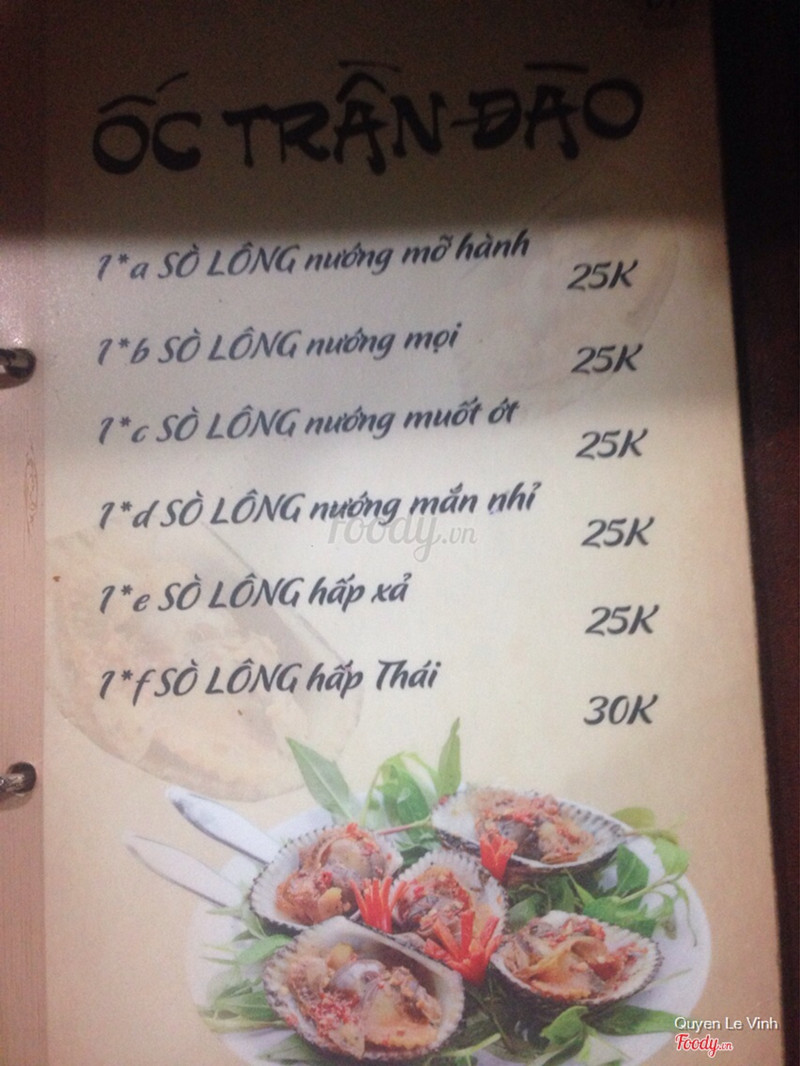 ỐC TRẦN ĐÀO
1*a SÒ LÔNG nướng mỡ hành 25K
1*b SÒ LÔNG nướng mọi 25K
1*c SÒ LÔNG nướng muốt ớt 25K
1*d SÒ LÔNG nướng mắn nhỉ 25K
1*e SÒ LÔNG hấp xả 25K
1*f SÒ LÔNG hấp Thái 30K
foody.vn
Quyen Le Vinh
Foody.vn